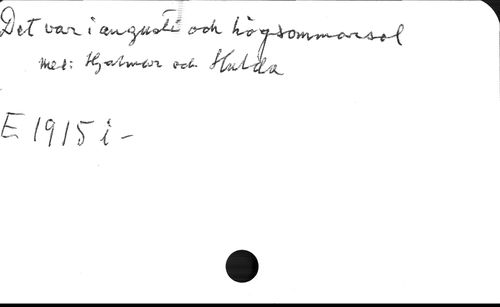 Det var i augusti och högsommarsol
mel: Hjalmar och Hulda
E 1915 i -